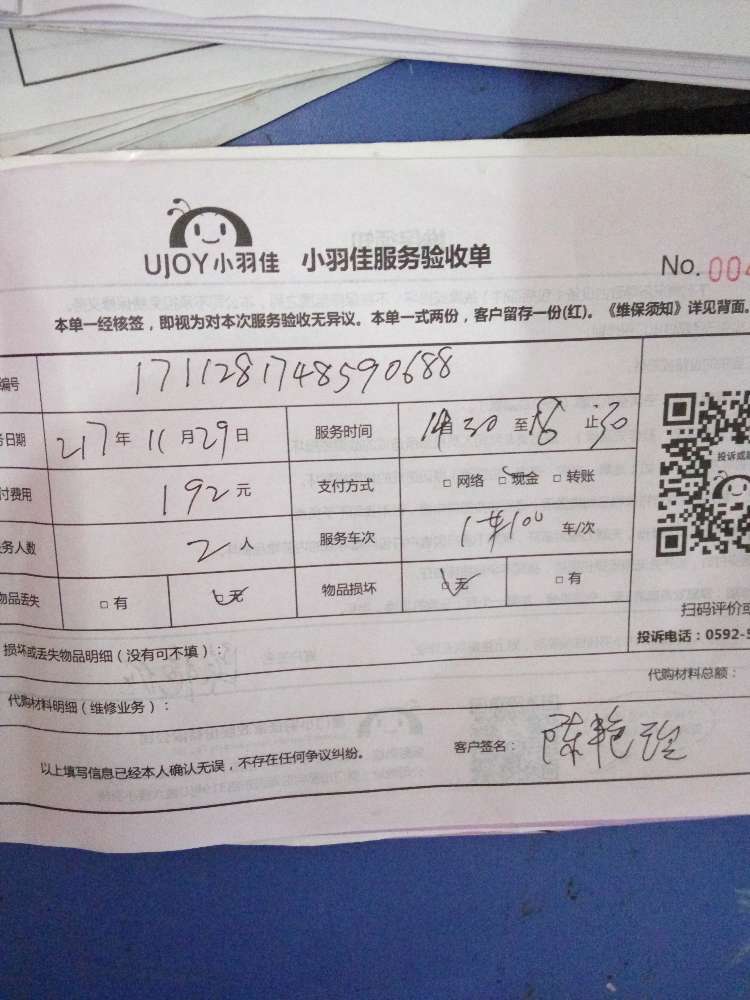 UJOY小羽佳 小羽佳服务验收单
No. 004
本单一经核签，即视为对本次服务验收无异议。本单一式两份，客户留存一份(红)。《维保须知》详见背面。
编号 1711281748590688
务日期 217年11月29日 服务时间 14自30至18止30
付费用 192元 支付方式 □ 网络 □ 现金 □ 转账
务人数 2人 服务车次 车/次
物品丢失 □ 有 □ 无 物品损坏 □ 无 □ 有
扫码评价或
投诉电话：0592-5
损坏或丢失物品明细（没有可不填）：
代购材料总额：
代购材料明细（维修业务）：
以上填写信息已经本人确认无误，不存在任何争议纠纷。 客户签名：陈艳玲